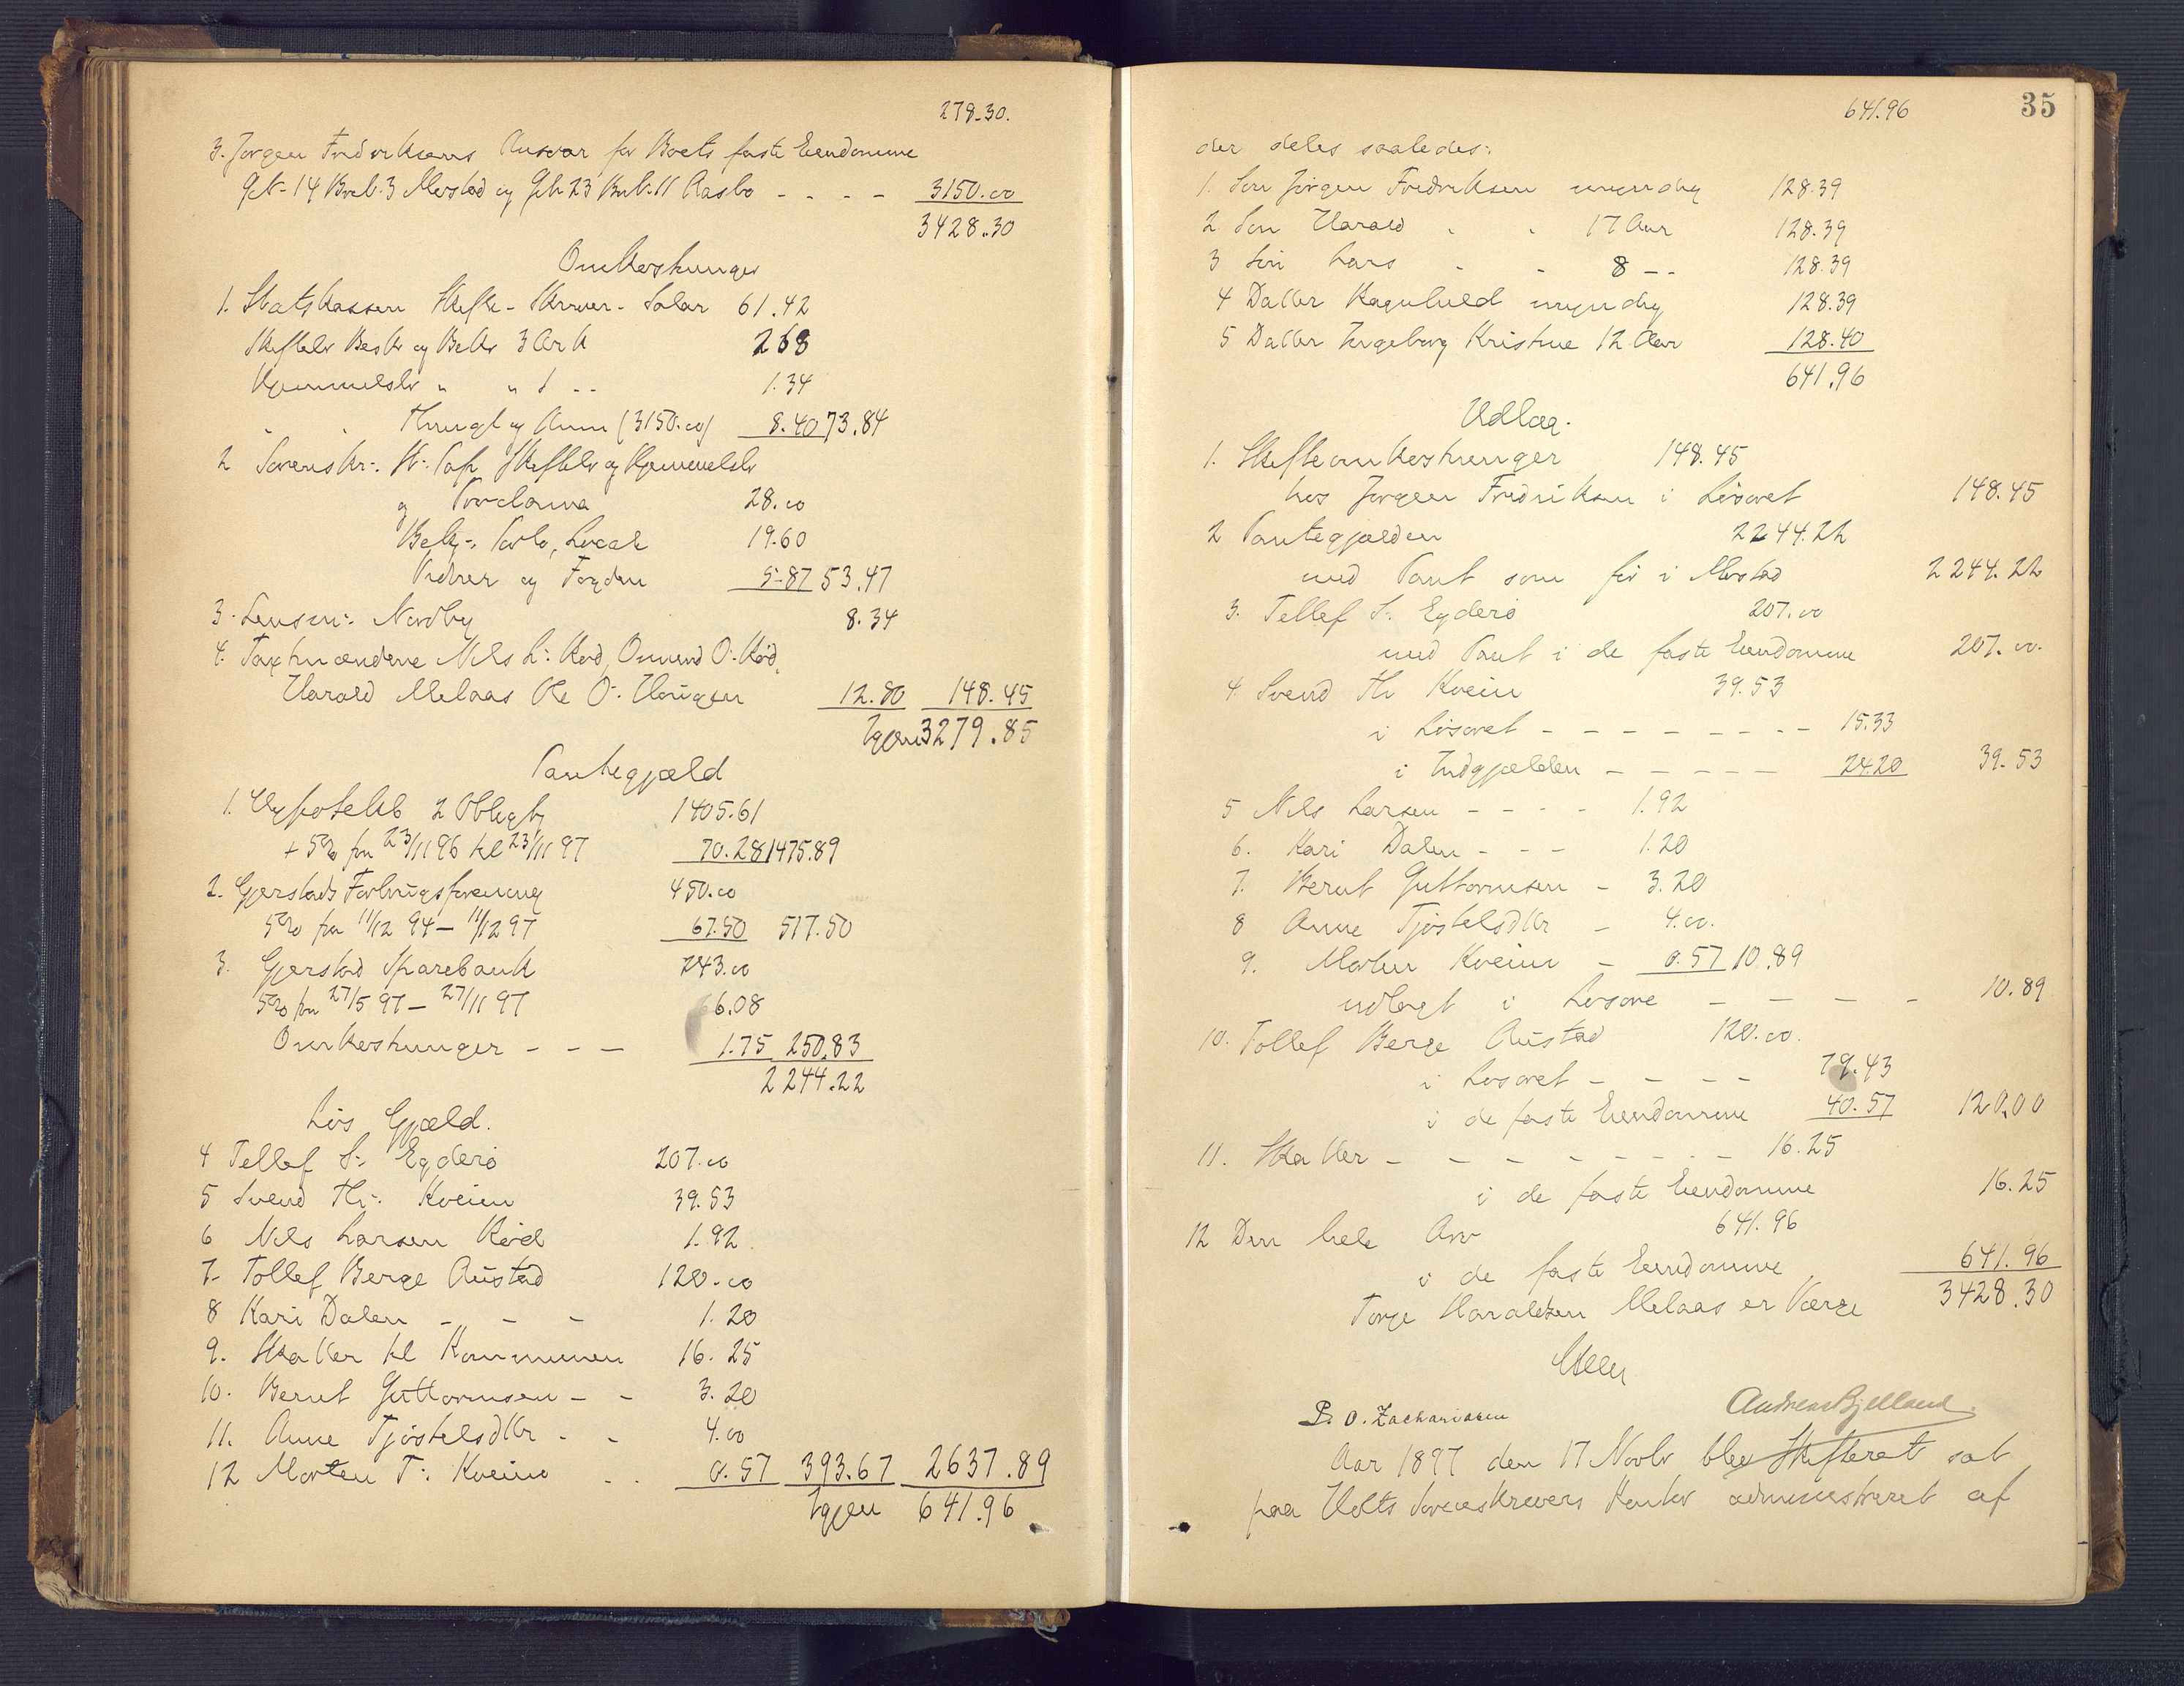 278.30.
3. Jørgen Fredriksens Ansvar for Boets faste Eiendomme
G.No 14 Br.No 3 Mostad og G.No 23 Br.No 11 Aasbo - - - - 3150.00
3428.30
Omkostninger
1. Statskassen Skifte-Skriver-Salar 61.42
Skiftebr Besk og Bekr 3 Ark 2 68
Hjemmelsbr " " 1 - - 1.34
" " Thingl og Anm (3150.00) 8.40 73.84
2 Sorenskr: St: Pap Skiftebr og Hjemmelsbr
og Proclama 28.00
Bekj: Porto, Locale 19.60
Vidner og Fogden 5.87 53.47
3. Lensm: Nordby 8.34
4. Taxtmændene Nils L: Rød, Omund O: Rød,
Harald Melaas Ole O: Haugen 12.80 148.45
Igjen 3279.85
Pantegjæld
1. Hypotekb 2 Obligtr 1405.61
+ 5% fra 23/11 96 til 23/11 97 70.28 1475.89
2. Gjerstads Forbrugsforening 450.00
5% fra 11/12 94 - 11/12 97 67.50 517.50
3. Gjerstad Sparebank 243.00
5% fra 27/5 97 - 27/11 97 6.08
Omkostninger - - - 1.75 250.83
2244.22
Løs Gjæld.
4 Tellef S: Egderø 207.00
5 Svend Th: Kveim 39.53
6 Nils Larsen Rød 1.92
7. Tollef Berge Austad 120.00
8 Kari Dalen - - - 1.20
9. Skatter til Kommunen 16.25
10. Bernt Guttormsen - - 3.20
11. Anne Tjøstelsdtr - - 4.00
12 Morten T: Kveim - - 0.57 393.67 2637.89
Igjen 641.96
35
641.96
der deles saaledes:
1. Søn Jørgen Fredriksen myndig 128.39
2 Søn Harald " " 17 Aar 128.39
3 Søn Lars " " 8 - - 128.39
4 Datter Ragnhild myndig 128.39
5 Datter Ingeborg Kristine 12 Aar 128.40
641.96
Udlæg.
1. Skifteomkostninger 148.45
hos Jørgen Fredriksen i Løsøret 148.45
2 Pantegjælden 2244.22
med Pant som før i Mostad 2244.22
3. Tellef S: Egderø 207.00
med Pant i de faste Eiendomme 207.00.
4. Svend Th Kveim 39.53
i Løsøret - - - - - - - - - 15.33
i Indgjælden - - - - - 24.20 39.53
5 Nils Larsen - - - - 1.92
6. Kari Dalen - - - 1.20
7. Bernt Guttormsen - 3.20
8 Anne Tjøstelsdtr - 4.00.
9. Morten Kveim - 0.57 10.89
udlagt i Løsøre - - - - 10.89
10. Tollef Berge Austad 120.00.
i Løsøret - - - - 79.43
i de faste Eiendomme 40.57 120.00
11. Skatter - - - - - - - - 16.25
i de faste Eiendomme 16.25
12 Den hele Arv 641.96
i de faste Eiendomme 641.96
Torje Haraldsen Melaas er Værge 3428.30
P. O. Zachariasen Andreas Bjelland.
Aar 1897 den 17 Novbr blev Skifteret sat
paa Nedts Sorenskrivers Kontor administreret af